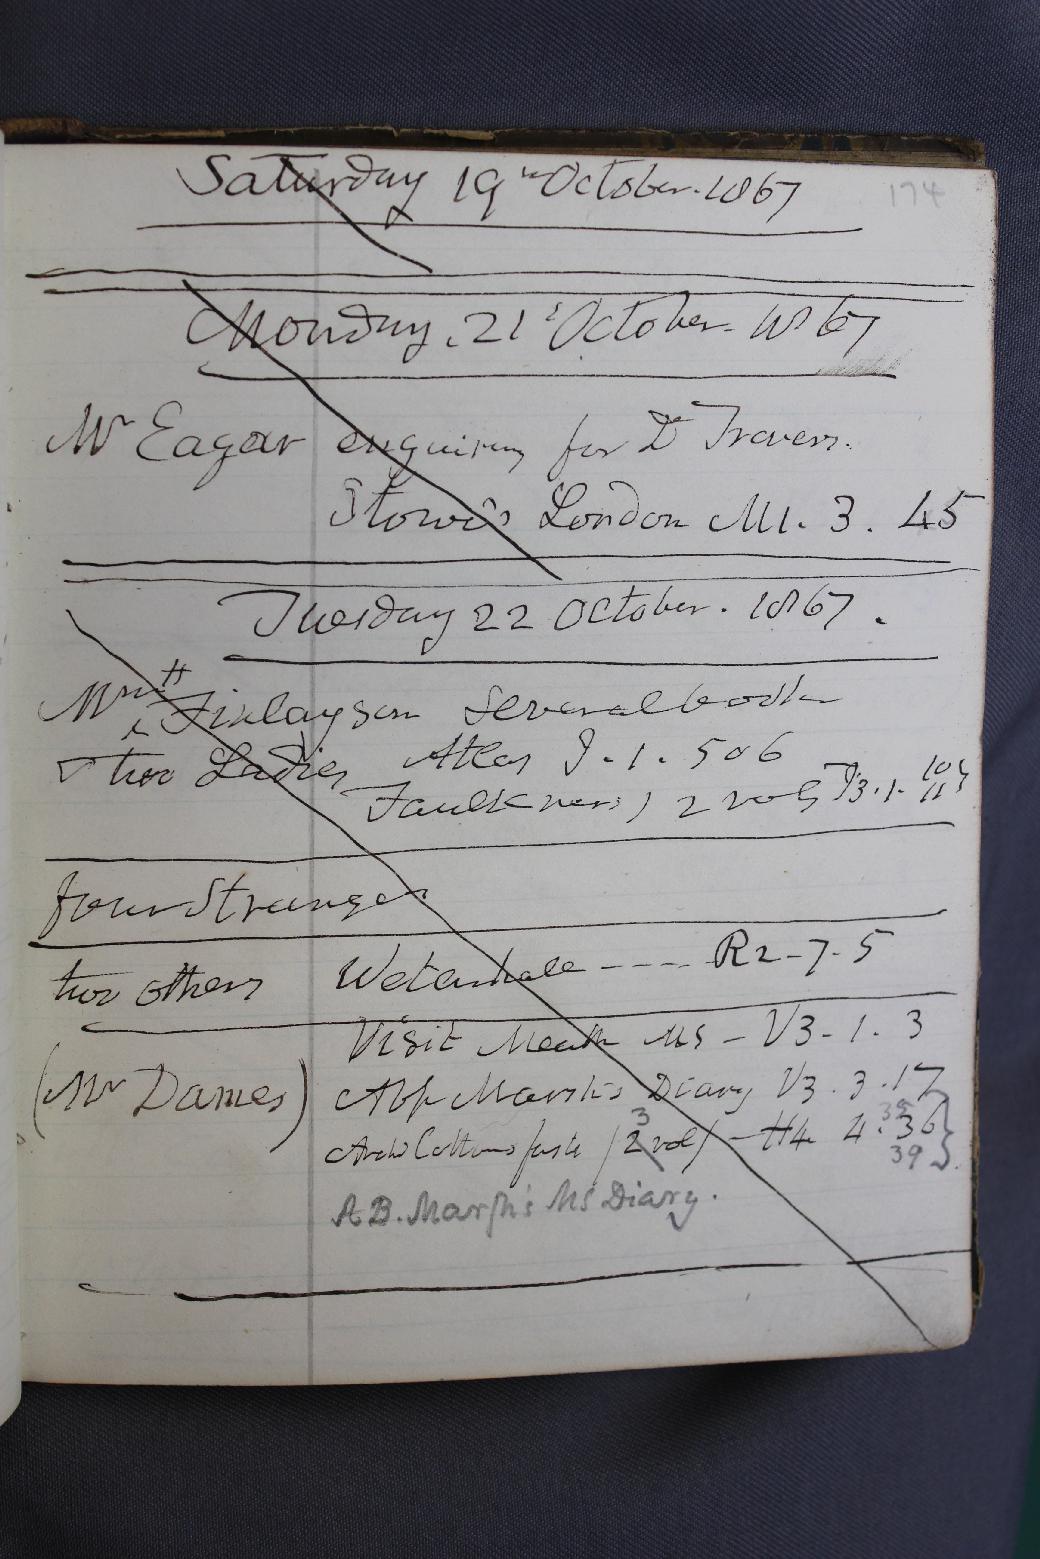 174
Saturday 19th October. 1867
Monday. 21st October. 1867
Mr Eagar enquiring for Dr Travers.
Stowe's London M1. 3. 45
Tuesday 22 October. 1867.
Mrs H Finlayson Several books
& two Ladies Atlas J. 1. 5 or 6
Faulkners) 2 vols 1. 10 11
four Strangers
two others Wetenhale ---- R2-7-5
Visit Meath MS - V3-1. 3
(Mr Dames) Abp Marsh's Diary V3. 3. 17
Cottons fasti (2 3 vol) - H4 4. 36 38
39
A B. Marsh's MS Diary.